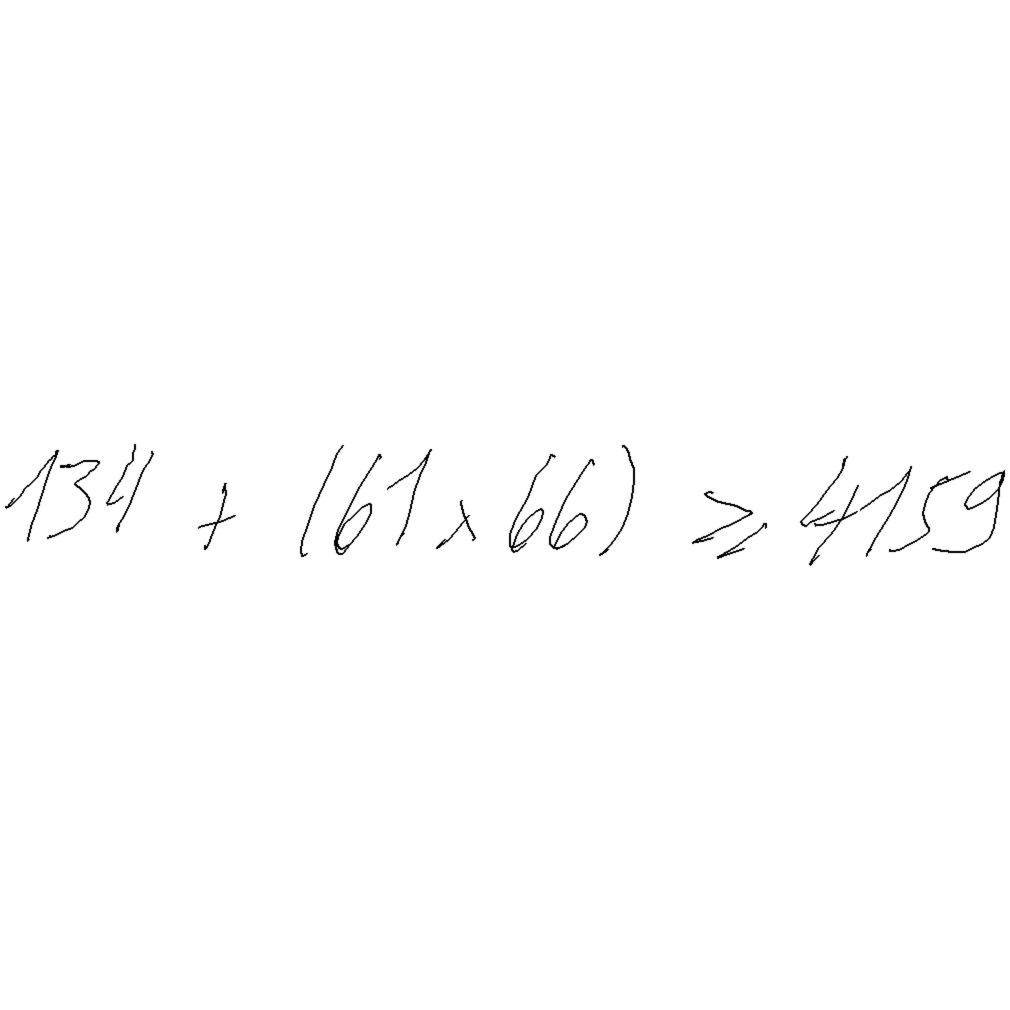 134 + (61 x 66) ≥ 4159